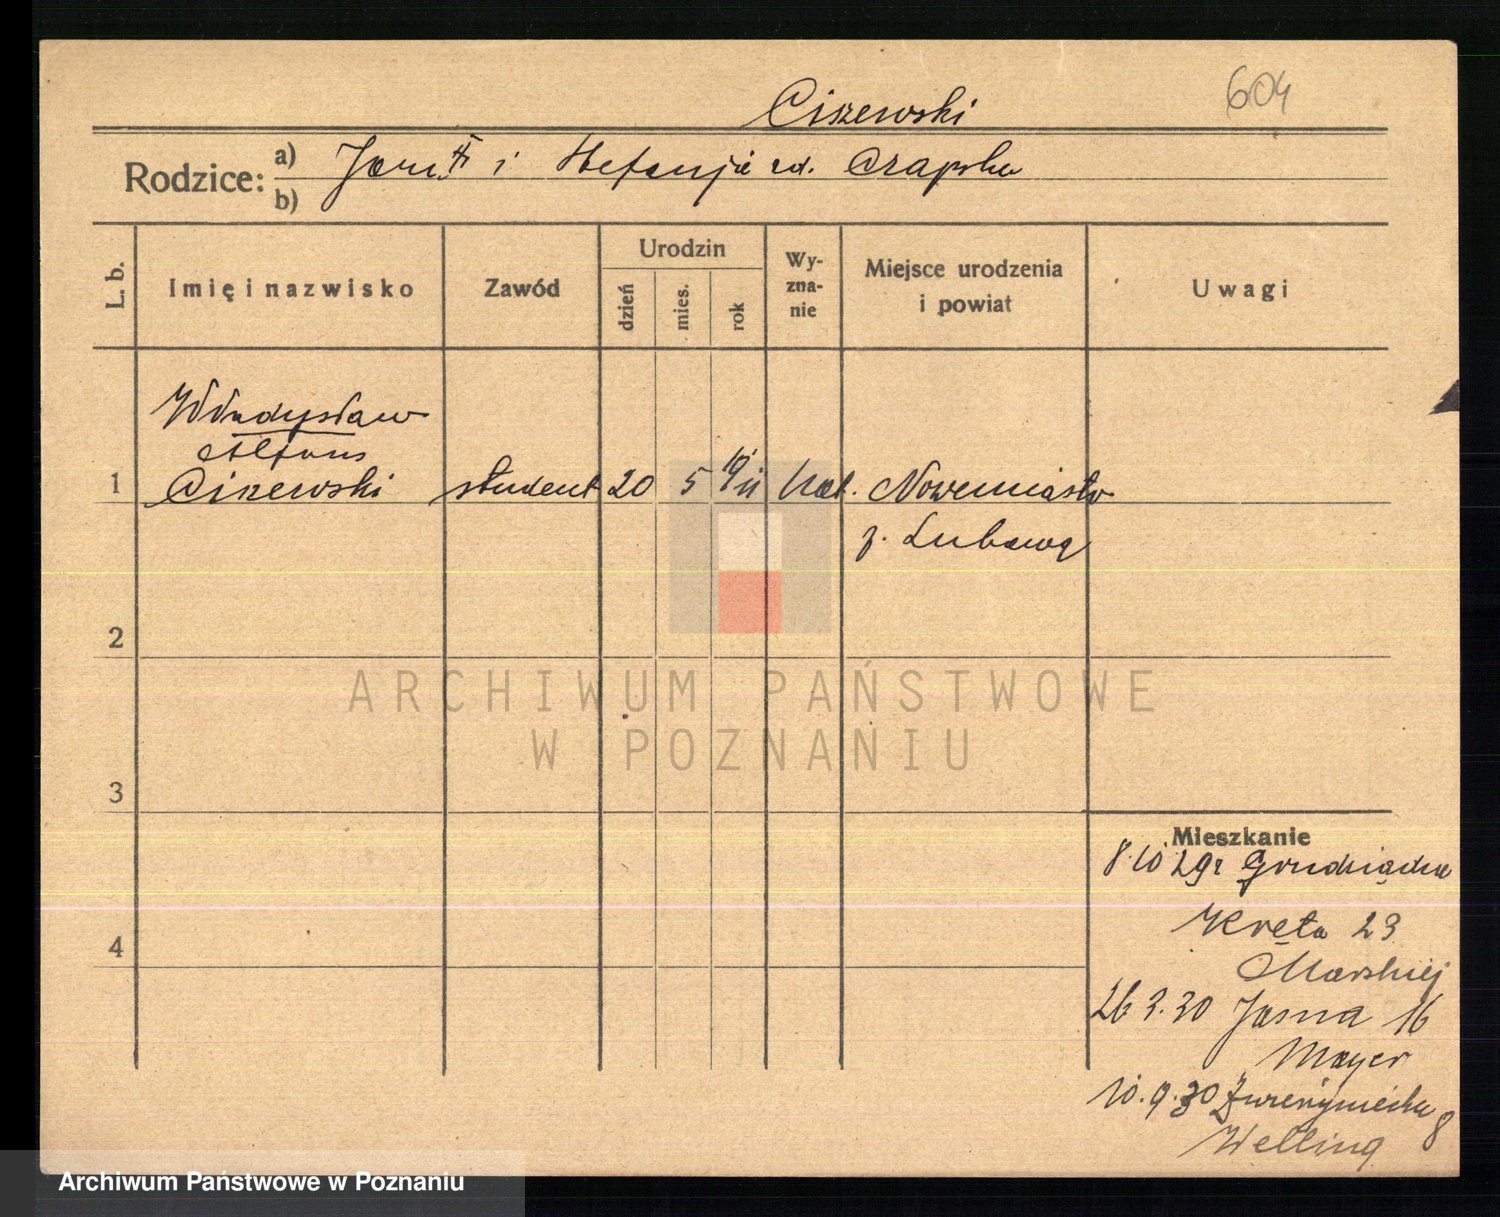 604
Ciszewski
Rodzice: a) Jan i Stefanja zd. Czapska
b)
L. b. Imię i nazwisko Zawód Urodzin dzień mies. rok Wy-zna-nie Miejsce urodzenia i powiat Uwagi
Władysław
Alfons
1 Ciszewski student 20 5 kat. Nowemiasto
p. Lubawa
2
ARCHIWUM PAŃSTWOWE
W POZNANIU
3
Mieszkanie
8.10 29r Grudziądza
4 Kręta 23
26 3.30 Jasna 16
Mayer
10.9.30 8
Welling
Archiwum Państwowe w Poznaniu